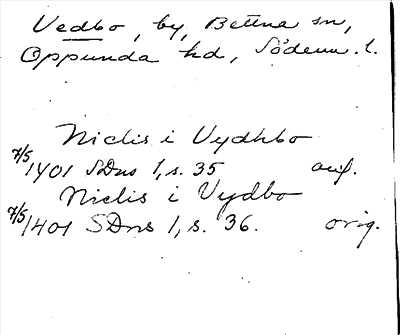 Vedbo, by, Bettna sn,
Oppunda hd, Södenm. l.
Niclis i Vydhbo
7/5 1401 SDns 1, s. 35 avs.
Niclis i Vydbo
7/5 1401 SDns 1, s. 36. orig.